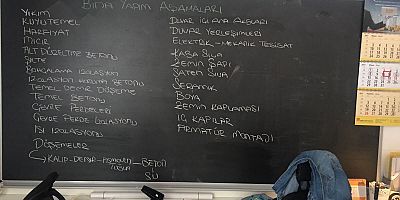 BİNA YAPIM AŞAMALARI
YIKIM
KUYU TEMEL
HAFRİYAT
MICIR
ALT DÜZELTME BETONU
ŞİLTE
BOHÇALAMA İZOLASYON
İZOLASYON KORUMA BETONU
TEMEL DEMİR DÖŞEME
TEMEL BETONU
ÇEVRE PERDELERİ
ÇEVRE PERDE İZOLASYON
ISI İZOLASYONU
DÖŞEMELER
KALIP-DEMİR- BETON
SU
DUVAR YERLEŞİMLERİ
ELEKTRİK - MEKANİK TESİSAT
KABA SIVA
ZEMİN ŞAPI
SATEN SIVA
SERAMİK
BOYA
ZEMİN KAPLAMASI
İÇ KAPILAR
ARMATÜR MONTAJI